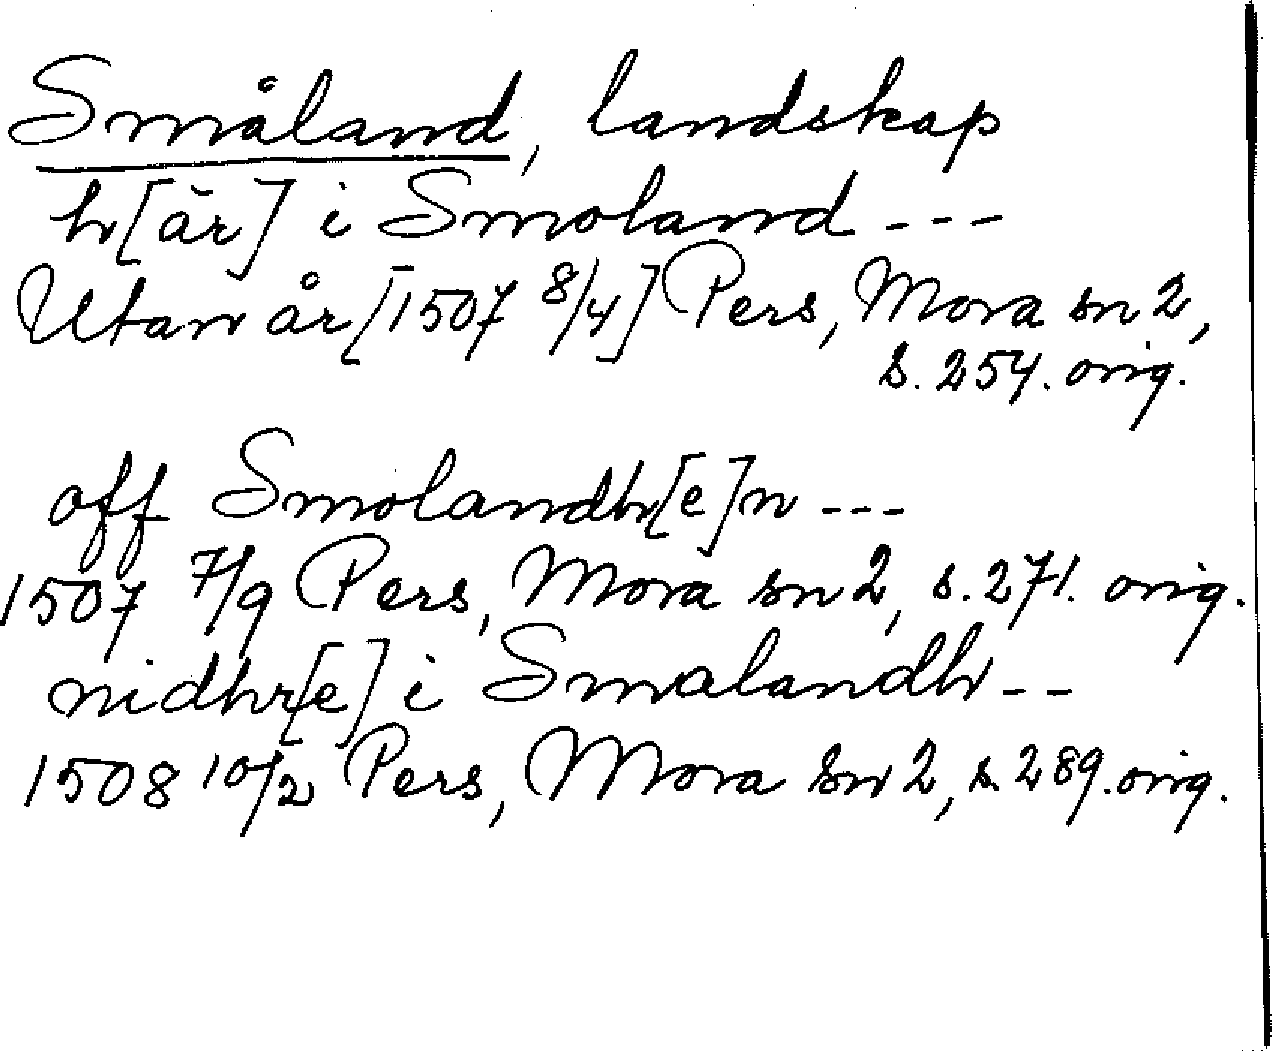 Småland, landskap
h[är] i Smoland ---
Utan år [1507 8/4] Pers, Mora sn 2,
s. 254. orig.
off Smolandh[e]n ---
1507 7/9 Pers, Mora sn 2, s. 271. orig.
nidhr[e] i Smalandh --
1508 10/2 Pers, Mora sn 2, s. 289. orig.